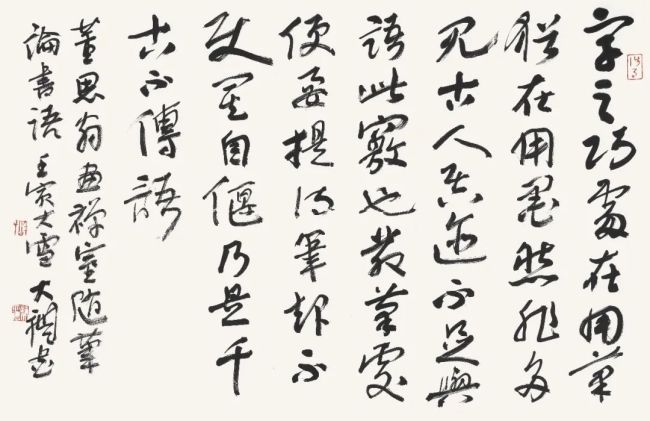 字之巧處在用筆
猶在用墨然非多
見古人真迹不足與
語此竅也發筆處
便要提得筆起不
使其自偃乃是千
古不傳語
董思翁畫禪室隨筆
論書語壬寅大雪大書